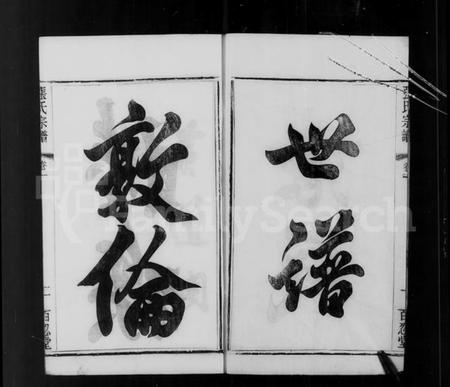 世譜
敦倫
張氏宗譜 卷一 百忍堂
張氏宗譜 卷一 二 百忍堂
FamilySearch